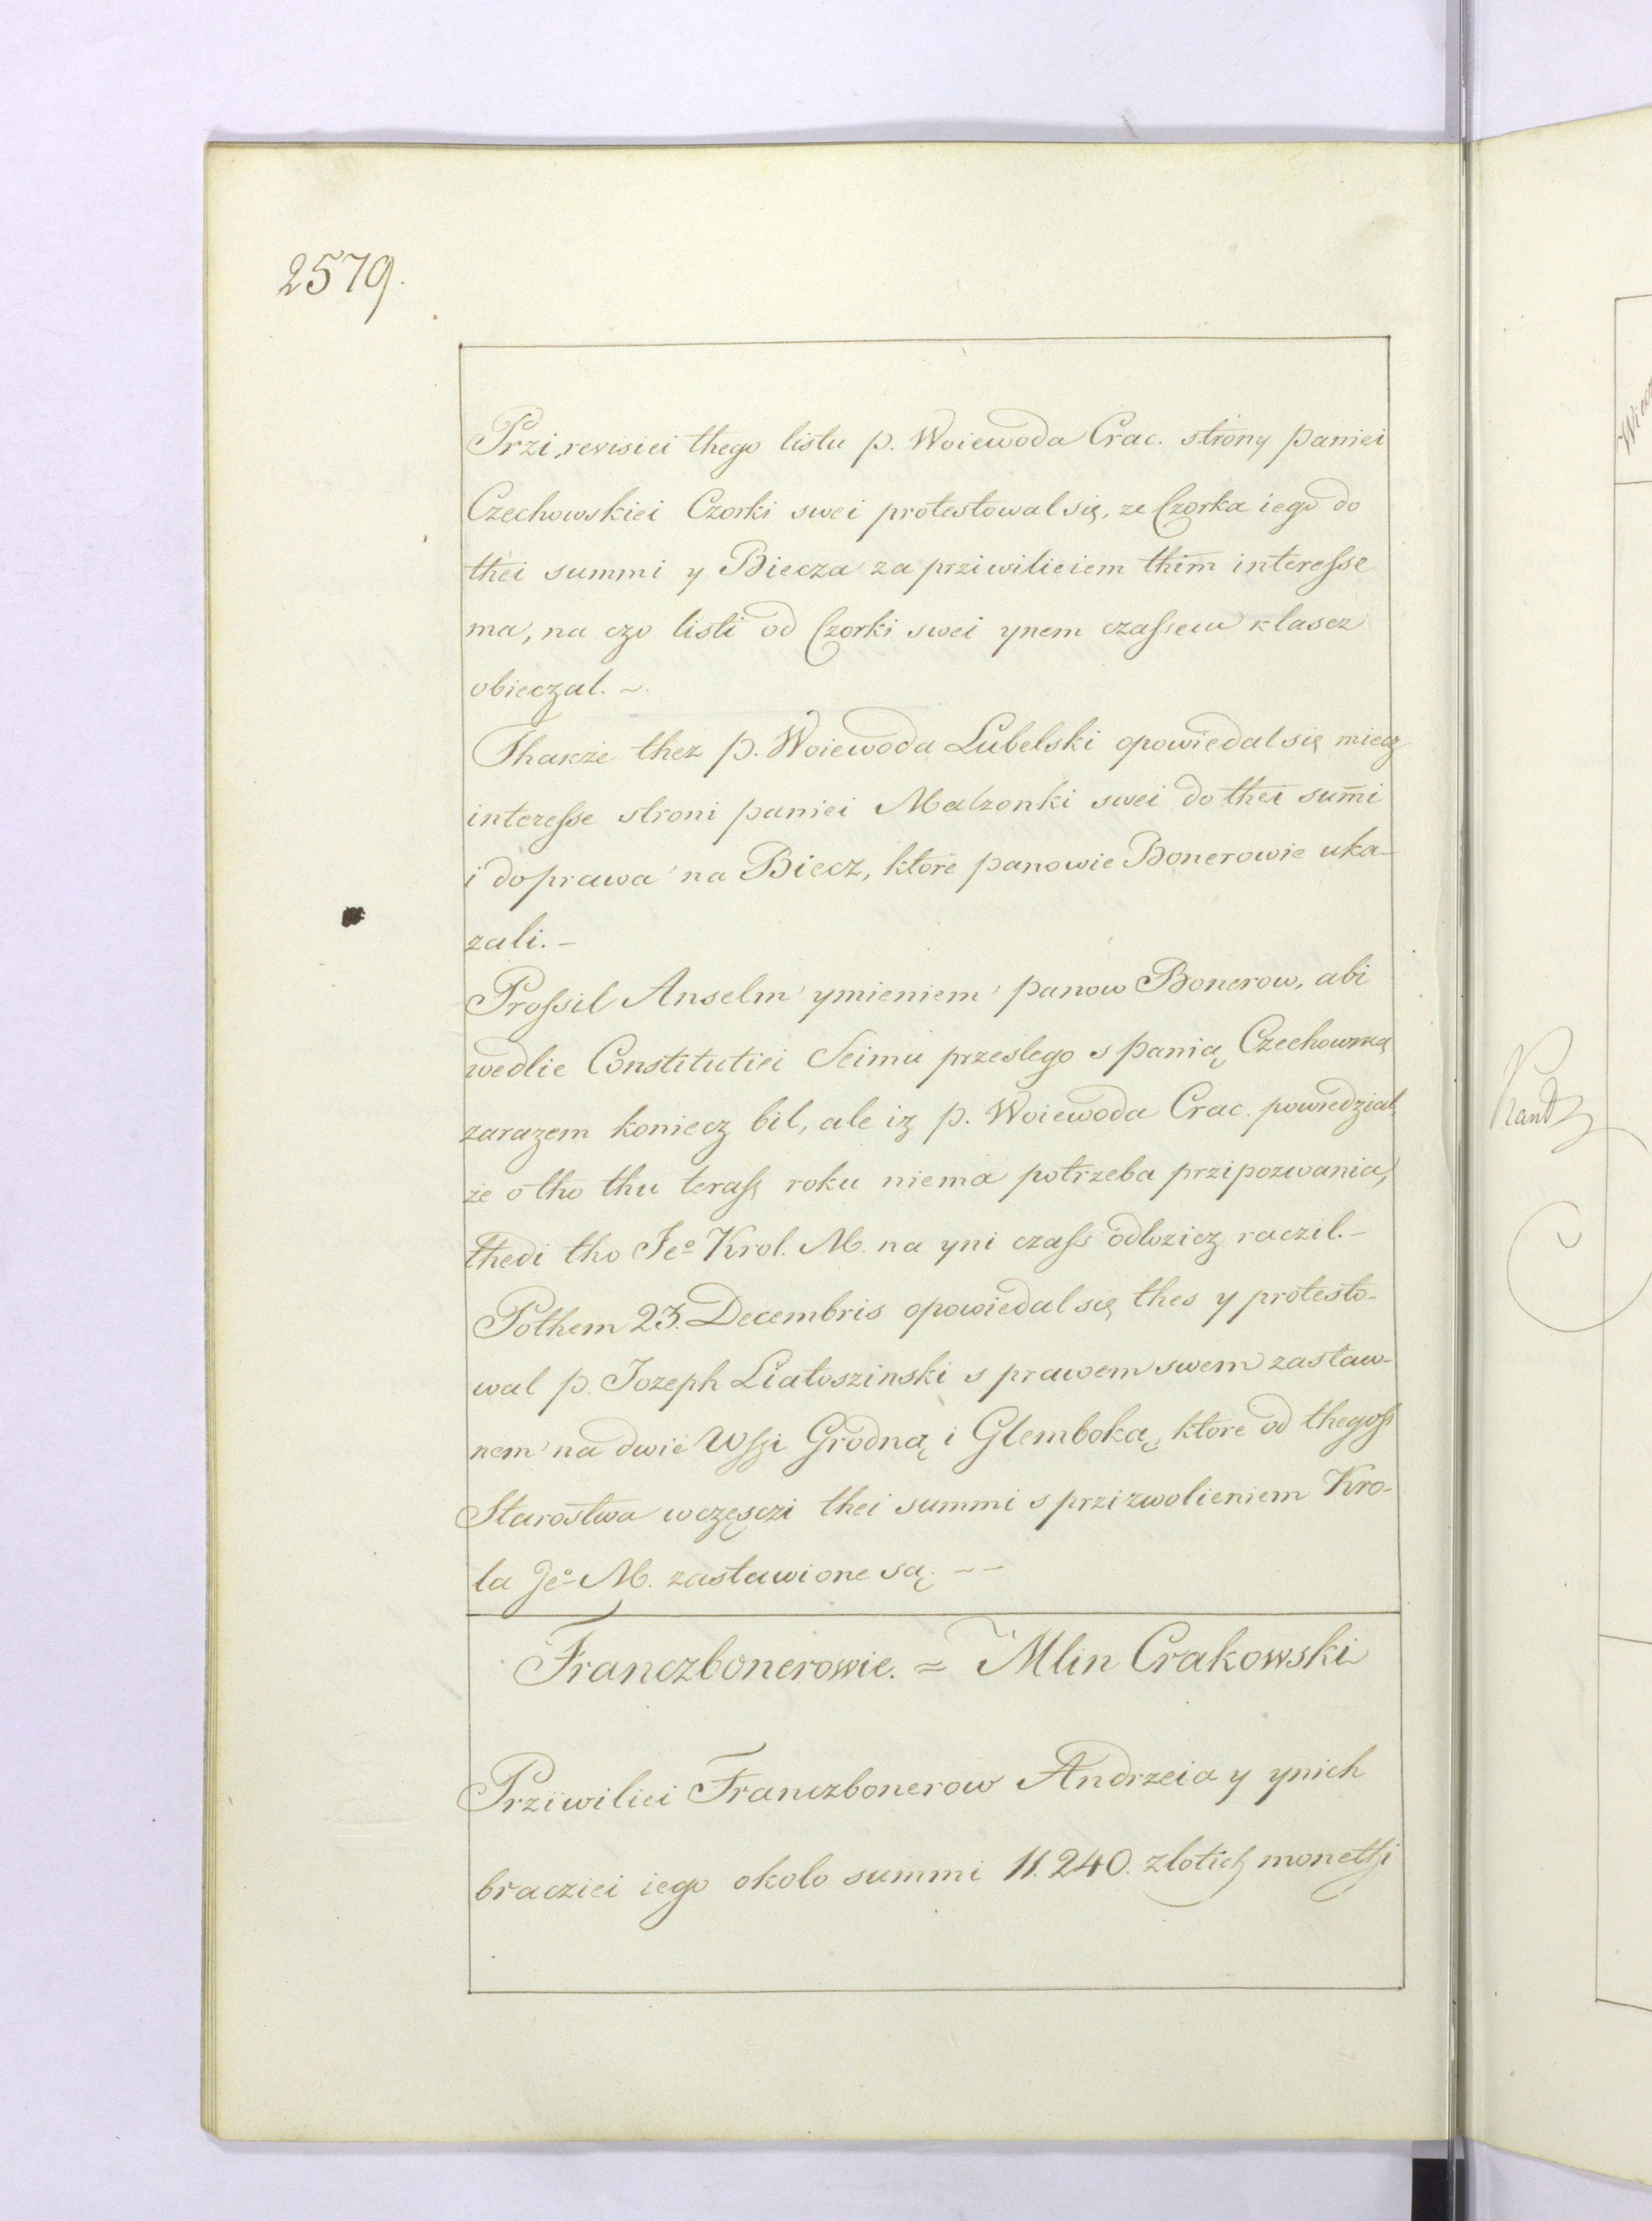 2579.
Przi revisiei thego listu p. Woiewoda Crac. strony paniei
Czechowskiei Czorki swei protestowal się, ze Czorka iego do
thei summi y Biecza za prziwilieiem thim interesse
ma, na czo listi od Czorki swei ynem czassem klascz
obieczal. ~.
Thakże thez p. Woiewoda Lubelski opowiedal się miecz
interesse stroni paniei Malzonki swei do thei sum̄i
i do prawa na Biecz, które panowie Bonerowie uka-
zali. –
Prossil Anselm ymieniem panow Bonerow, abi
wedlie Constitutiei Seimu przeslego s panią Czechowską
zarazem koniecz bil, ale iz p. Woiewoda Crac. powiedzial,
że o tho thu terass roku niema potrzeba przipozwania,
thedi tho Jeº Krol. M. na yni czass odlozicz raczil. –
Pothem 23. Decembris opowiedal się thes y protesto-
wal p. Jozeph Liatoszinski s prawem swem zastaw-
nem na dwie Wszi Grodną i Glemboką, które od thegoss
Starostwa wczęsczi thei summi s przizwolieniem Kro-
la Jeº M. zastawione są. – –
Franczbonerowie. = Mlin Crakowski
Prziwiliei Franczbonerow Andrzeia y ynich
bracziei iego okolo summi 11.240. zlotich monethi